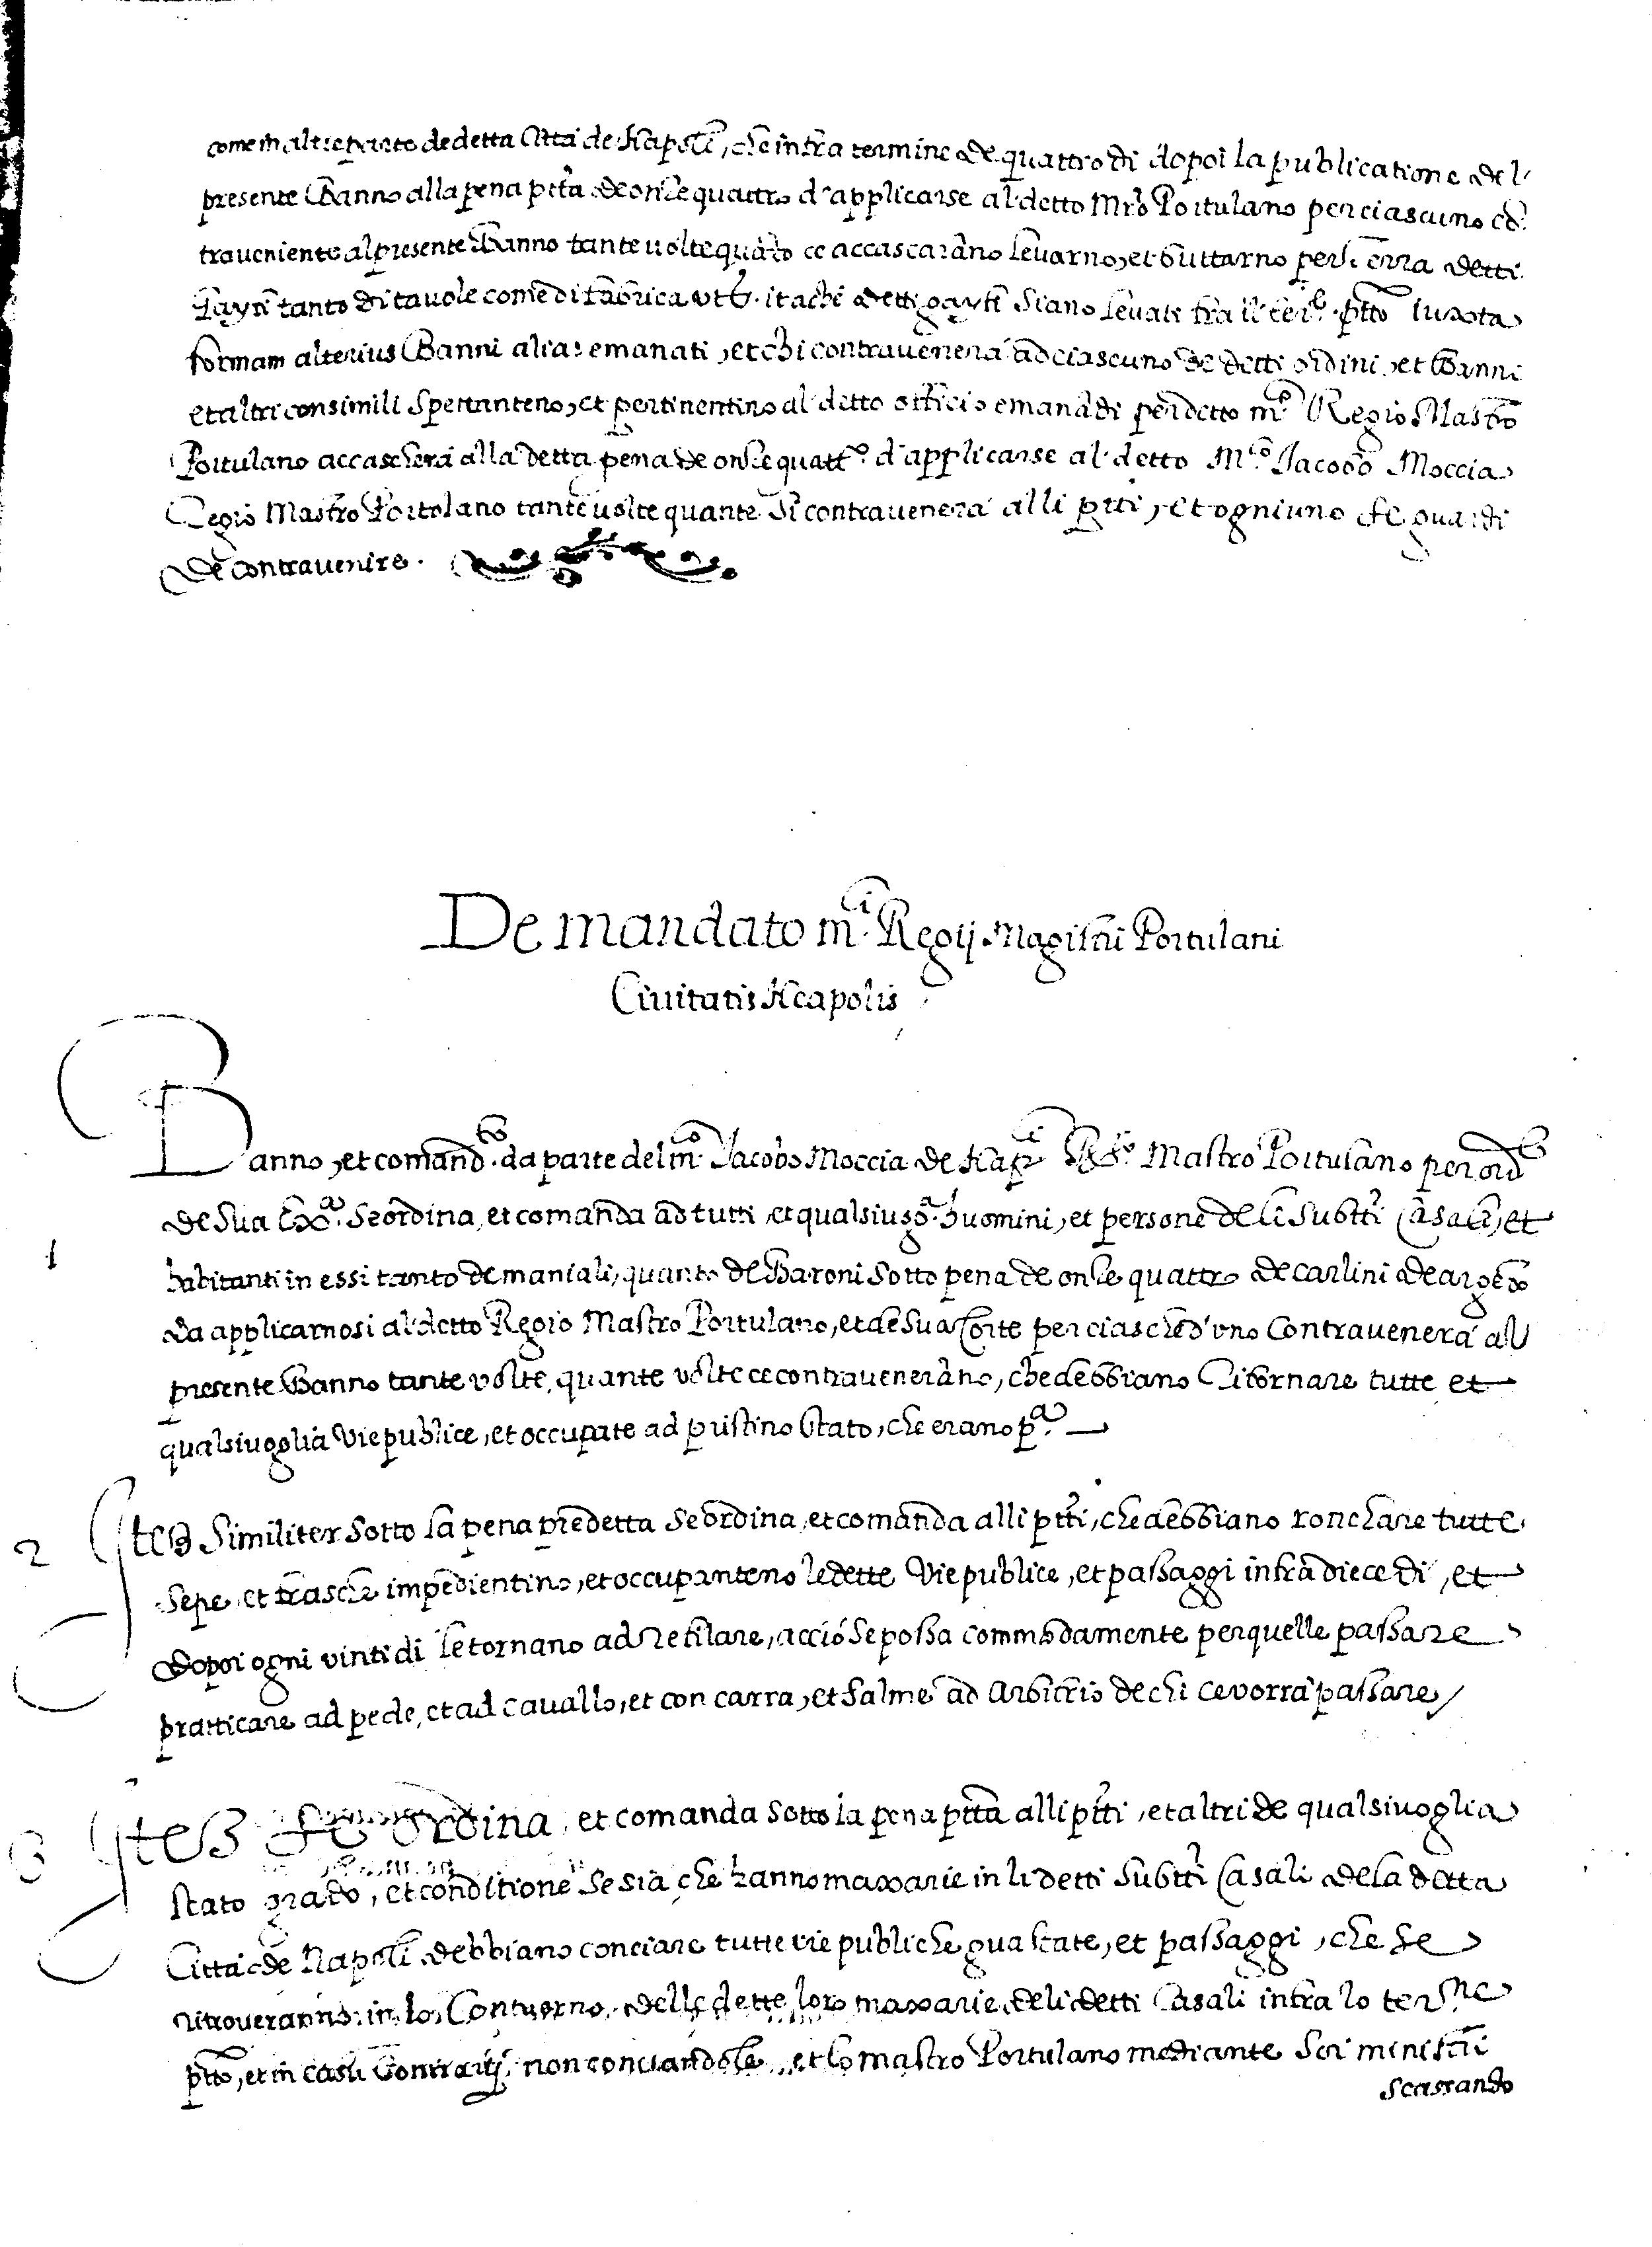 come in altre parte de detta Città de Napoli, che infra termine de quattro di dopoi la publicatione del
presente Banno alla pena p̃tta de onse quattro d'applicarse al detto Mro Portulano per ciascuno cõ
traveniente al presente Banno tante volte quãto ce accascarãno levarno, et buttarno per terra detti
Gayfi tanto di tavole come di fabrica ut s.ª ita che detti gayfi siano levati fra il p̃tto iuxta
formam alterius Banni alias emanati, et chi contravenerà ad ciascuno de detti ordini, et Banni
et altri consimili spettanteno, et pertinentino al detto officio emanãdi per detto m.co Regio Mastro
Portulano accascherà alla detta pena de onse quatt.o d'applicarse al detto M.co Jacobo Moccia
Regio Mastro Portolano tante volte quante si contravenerà alli p̃tti, et ogniuno se guardi
de contravenire.
De mandato m.ci Regij Magistri Portulani
Civitatis Neapolis
1
Banno, et comand.to da parte del m.co Jacobo Moccia de Nap.i R.o Mastro Portulano per ord
de Sua Ex.a se ordina, et comanda ad tutti, et qualsivog.a huomini, et persone de li Subtti Casali, et
habitanti in essi tanto demaniali, quanto de Baroni sotto pena de onse quattro de carlini de argẽto
da applicarnosi al detto Regio Mastro Portulano, et de sua Corte per ciasched'uno Contravenerà al
presente Banno tante volte, quante volte ce contraveneràno, che debbiano Ritornare tutte et
qualsivoglia vie publice, et occupate ad pristino stato, che erano p.a
2
Itẽ Similiter sotto la pena predetta se ordina, et comanda alli p̃tti, che debbiano ronchare tutte
sepe, et frasche impedientino, et occupanteno le dette vie publice, et passaggi infra diece di, et
dopoi ogni vinti di le tornano ad refilare, acciò se possa commodamente per quelle passare
pratticare ad pede, et ad cavallo, et con carra, et salme ad arbitrio de chi ce vorrà passare
3
Itẽ se ordina, et comanda sotto la pena p̃tta alli p̃tti, et altri de qualsivoglia
stato grado, et conditione se sia che hanno maxarie in li detti Subtti Casali de la detta
Città de Napoli debbiano conciare tutte vie publiche guastate, et passaggi, che se
ritroveranno in lo Contuorno delle dette loro maxarie de li detti Casali infra lo ter.ne
p̃tto, et in casu Contrarij non conciandole, et lo mastro Portulano mediante soi ministri
scassando